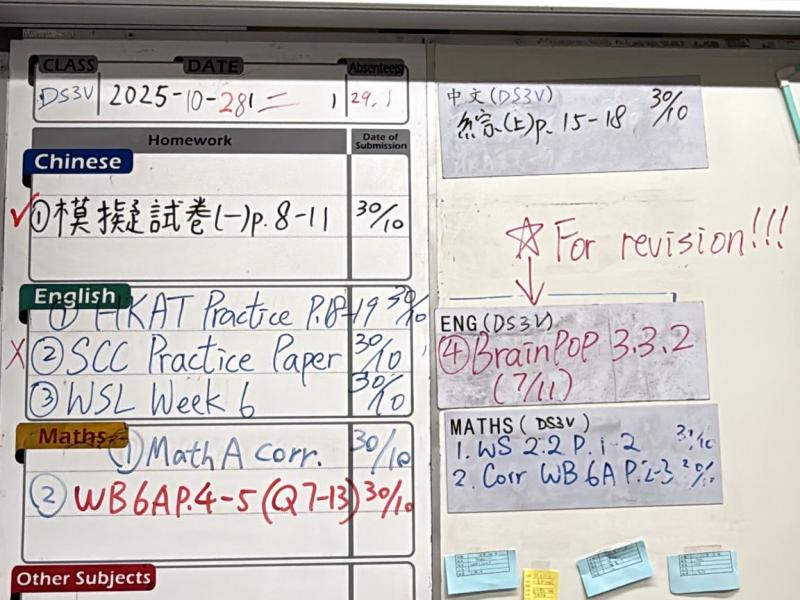 CLASS DATE Absentee(s)
DS3V 2025-10-28 二 29.1
Homework Date of Submission
Chinese
① 模擬試卷(一)p.8-11 30/10
English
① HKAT Practice P.18-19 30/10
② SCC Practice Paper 30/10
③ WSL Week 6 30/10
Maths
① Math A Corr. 30/10
② WB6A P.4-5 (Q7-13) 30/10
Other Subjects
中文(DS3V) 30/10
(上)p. 15-18
☆ For revision!!!
ENG(DS3V)
④ BrainPOP 3.3.2
(7/11)
MATHS(DS3V)
1. WS 2.2 P.1-2
2. Corr WB 6A P.2-3